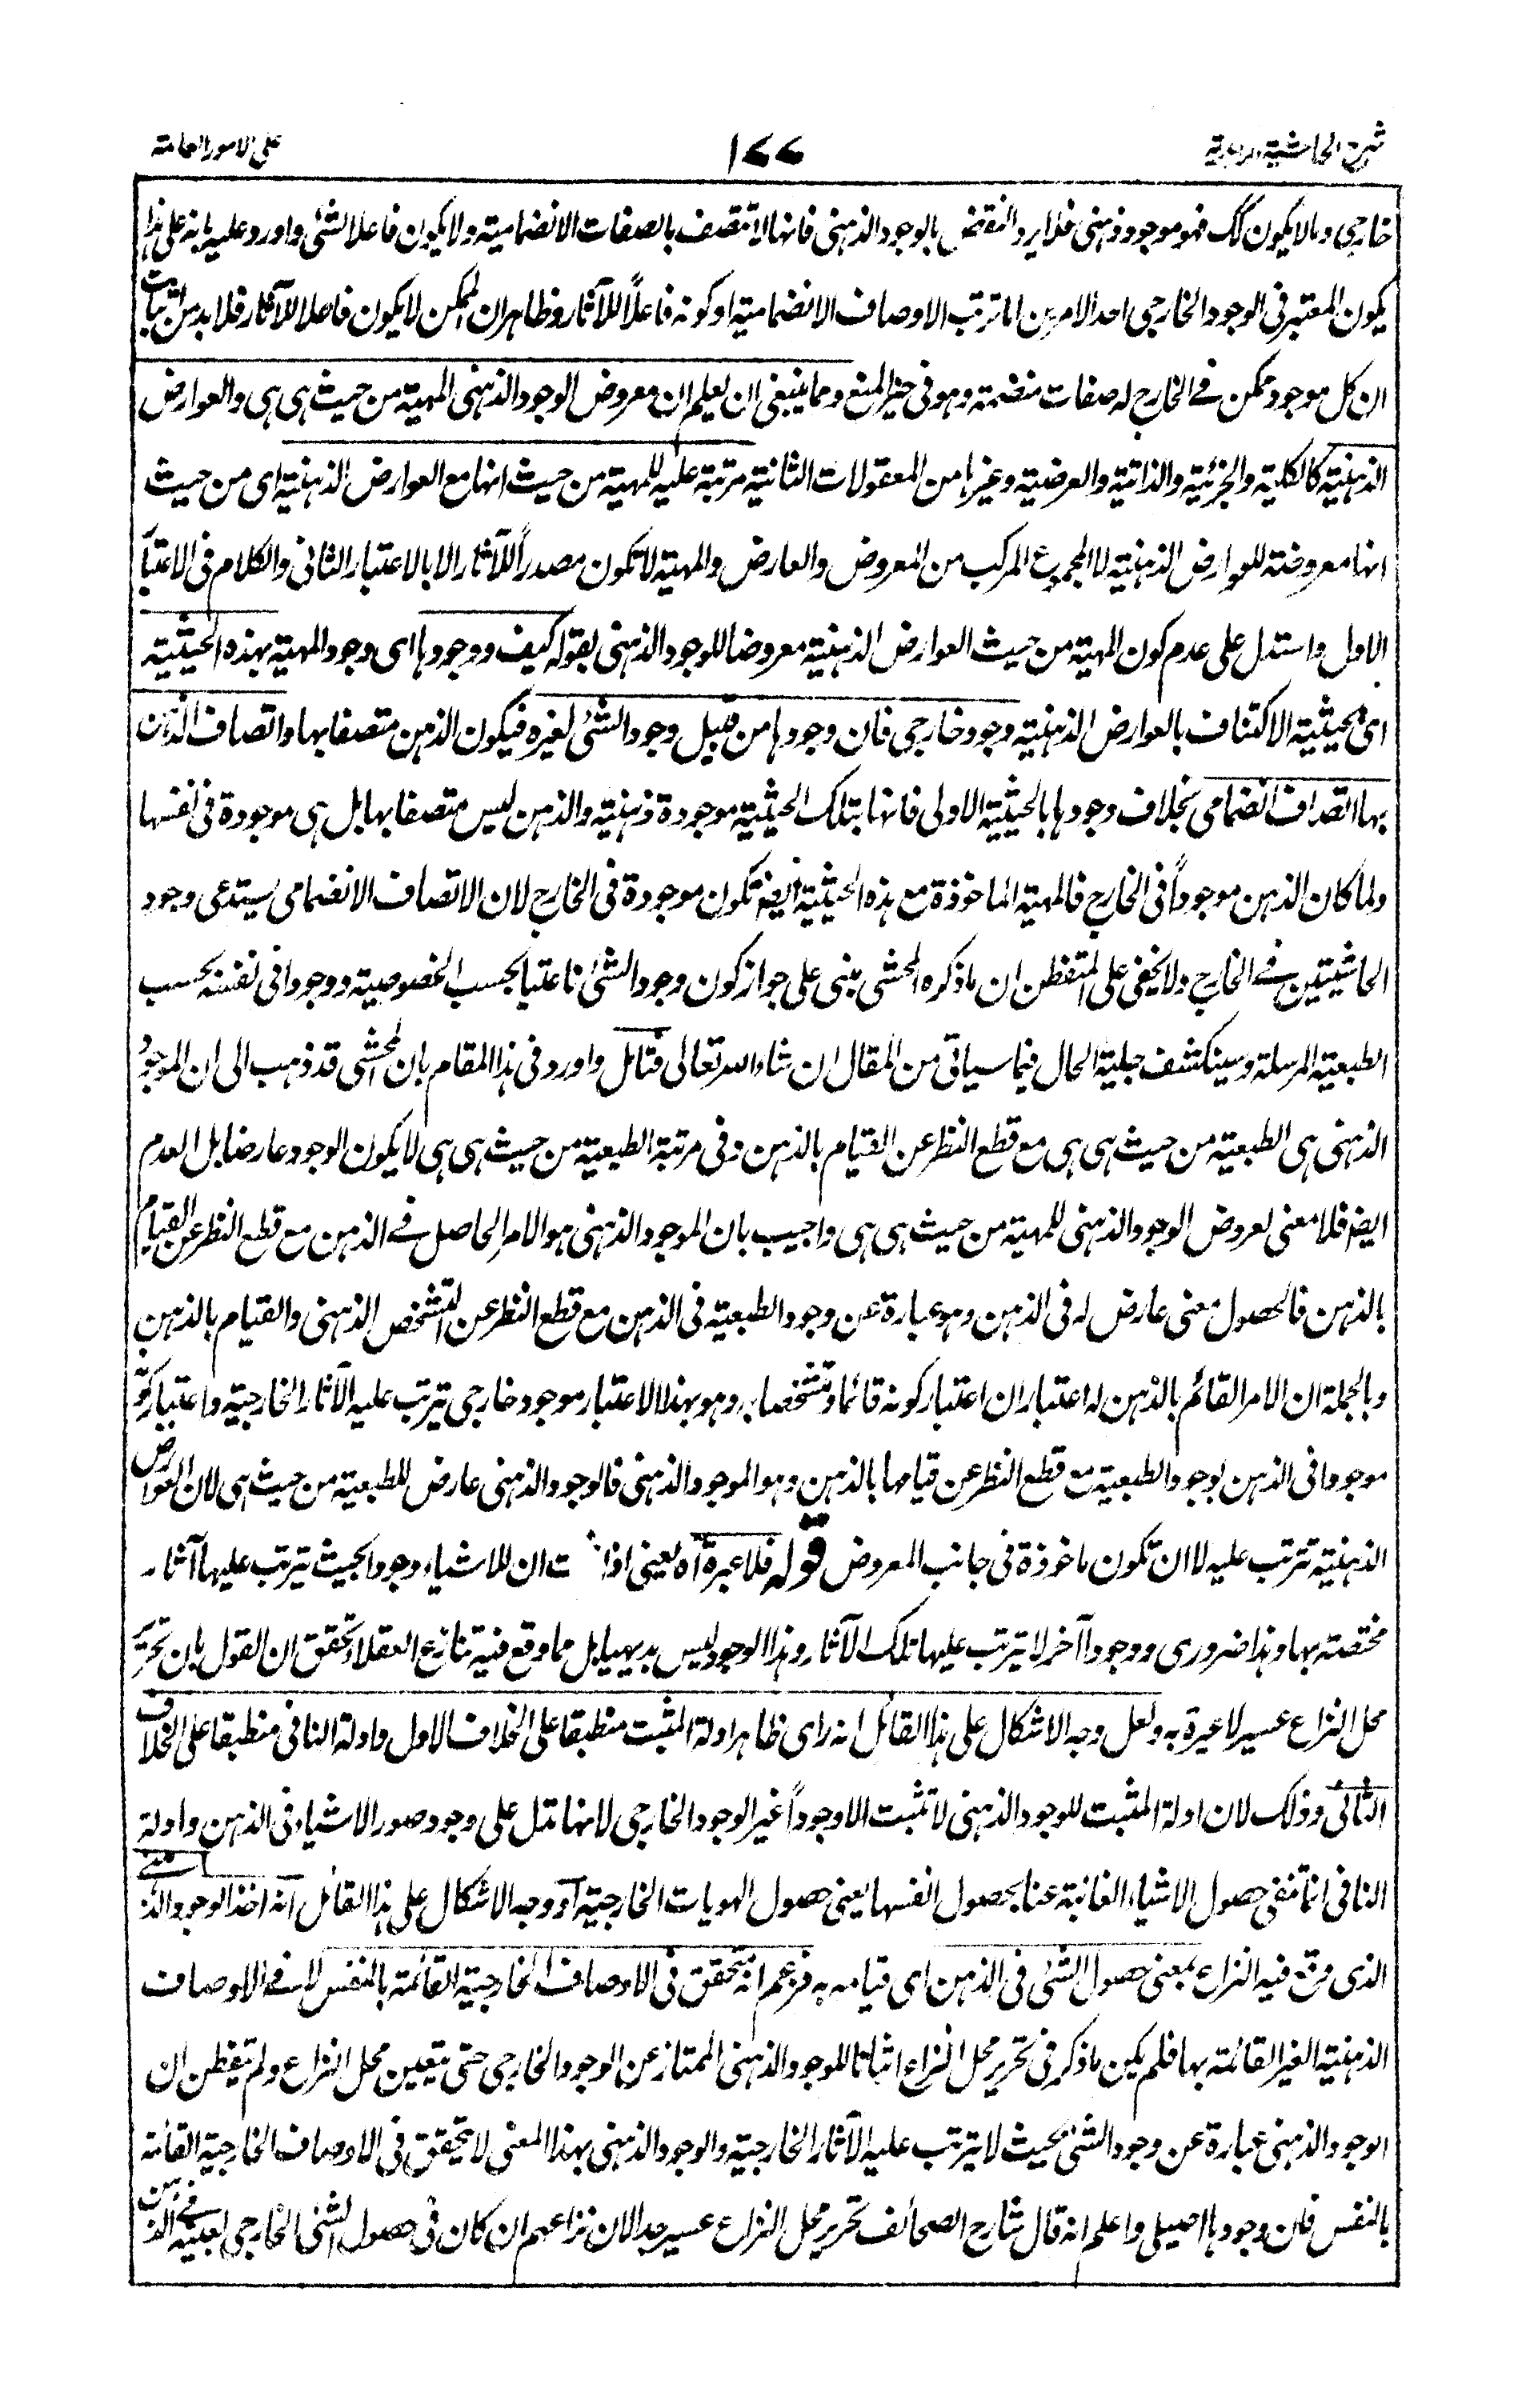 شرح الحاشية الزاهدية
١٧٧
على الامور العامة
خارجى وما لا يكون كك فهو موجود ذهنى فلا يرد النقض بالوجود الذهنى فانها لا تتصف بالصفات الانضمامية ولا يكون فاعلا لشئى واورد عليه بانه على هذا
يكون المعتبر فى الوجود الخارجى احد الامرين اما ترتب الاوصاف الانضمامية او كونه فاعلاً للآثار وظاهر ان الممكن لا يكون فاعلا للآثار فلا بد من اثبات
ان كل موجود ممكن فى الخارج له صفات منضمة وهو فى حيز المنع ومما ينبغى ان يعلم ان معروض الوجود الذهنى المهية من حيث هى هى والعوارض
الذهنية كالكلية والجزئية والذاتية والعرضية وغيرها من المعقولات الثانية مرتبة عليه للمهية من حيث انها مع العوارض الذهنية اى من حيث
انها معروضة للعوارض الذهنية لا المجموع المركب من المعروض والعارض والمهية لا تكون مصدراً للآثار الا بالاعتبار الثانى والكلام فى الاعتبا
الاول واستدل على عدم كون المهية من حيث العوارض الذهنية معروضا للوجود الذهنى بقوله كيف ووجودها اى وجود المهية بهذه الحيثية
اى حيثية الاكتناف بالعوارض الذهنية وجود خارجى فان وجودها من قبيل وجود الشئى لغيره فيكون الذهن متصفا بها واتصاف الذهن
بها اتصاف انضمامى بخلاف وجودها بالحيثية الاولى فانها بتلك الحيثية موجودة ذهنية والذهن ليس متصفا بها بل هى موجودة فى نفسها
ولما كان الذهن موجوداً فى الخارج فالمهية الماخوذة مع هذه الحيثية ايضا تكون موجودة فى الخارج لان الاتصاف الانضمامى يستدعى وجود
الحاشيتين فى الخارج ولا يخفى على المتفطن ان ما ذكره المحشى مبنى على جواز كون وجود الشئى ناعتيا بحسب الخصوصية ووجودا فى نفسه بحسب
الطبعية المرسلة وسينكشف جلية الحال فيما سياتى من المقال ان شاء الله تعالى فتامل واورد فى هذا المقام بان المحشى قد ذهب الى ان الموجود
الذهنى هى الطبعية من حيث هى هى مع قطع النظر عن القيام بالذهن وفى مرتبة الطبعية من حيث هى هى لا يكون الوجود عارضا بل العدم
ايضا فلا معنى لعروض الوجود الذهنى للمهية من حيث هى هى واجيب بان الموجود الذهنى هو الامر الحاصل فى الذهن مع قطع النظر عن القيام
بالذهن فالحصول معنى عارض له فى الذهن وهو عبارة عن وجود الطبعية فى الذهن مع قطع النظر عن التشخص الذهنى والقيام بالذهن
وبالجملة ان الامر القائم بالذهن له اعتباران اعتبار كونه قائما وتشخصا به وهو بهذا الاعتبار موجود خارجى يترتب عليه الآثار الخارجية واعتبار كونه
موجودا فى الذهن بوجود الطبعية مع قطع النظر عن قيامها بالذهن وهو الموجود الذهنى فالوجود الذهنى عارض للطبعية من حيث هى لان العوارض
الذهنية تترتب عليه لا ان تكون ماخوذة فى جانب المعروض قوله فلا عبرة آه يعنى اذا ان للاشياء وجودا بحيث يترتب عليها آثار
مختصة بها وهذا ضرورى ووجوداً آخر لا يترتب عليها تلك الآثار وهذا الوجود ليس بديهيا بل ما وقع فيه تنازع العقلاء تحقق ان القول بان تحرير
محل النزاع عسير لا عبرة به ولعل وجه الاشكال على هذا القائل انه راى ظاهر ادلة المثبت منطبقا على الخلاف الاول وادلة النافى منطبقا على الخلاف
الثانى وذلك لان ادلة المثبت للوجود الذهنى لا تثبت الا وجوداً غير الوجود الخارجى لانها تدل على وجود صور الاشياء فى الذهن وادلة
النافى انما تنفى حصول الاشياء الغائبة عنا بحصول انفسها يعنى حصول الهويات الخارجية او وجه الاشكال على هذا القائل انه اخذ الوجود الذهنى
الذى وقع فيه النزاع بمعنى حصول الشئى فى الذهن اى قيامه به فزعم انه تحقق فى الاوصاف الخارجية القائمة بالنفس لا فى الاوصاف
الذهنية الغير القائمة بها فلم يكن ما ذكر فى تحرير محل النزاع اثباتا للوجود الذهنى الممتاز عن الوجود الخارجى حتى يتعين محل النزاع ولم يتفطن ان
الوجود الذهنى عبارة عن وجود الشئى بحيث لا يترتب عليه الآثار الخارجية والوجود الذهنى بهذا المعنى لا تحقق فى الاوصاف الخارجية القائمة
بالنفس فان وجودها اصيلى واعلم انه قال شارح الصحائف تحرير محل النزاع عسير جدا لان نزاعهم ان كان فى حصول الشئى الخارجى بعينه فى الذهن